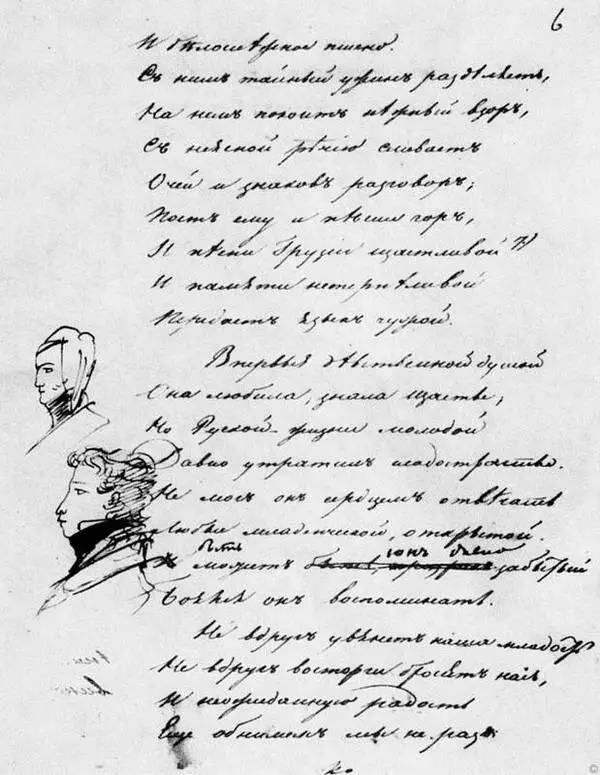 6
И бѣлоснѣжное пшено.
Съ нимъ тайный ужинъ раздѣляетъ,
На нимъ покоитъ нѣжный взоръ,
Съ неясной рѣчію сливаетъ
Очей и знаковъ разговоръ;
Поетъ ему и пѣсни горъ,
И пѣсни Грузіи щастливой *)
И памяти нетерпѣливой
Передаетъ языкъ чужой.
Впервыя дѣвственной душой
Она любила, знала щастье;
Но Руской жизни молодой
Давно утратилъ сладострастье.
Не могъ онъ сердцемъ отвѣчать
Любви младенческой, открытой.
быть сонъ
Можетъ забытый
Боялся онъ воспоминать.
Не вдругъ увянетъ наша младость
Не вдругъ восторги бросятъ насъ,
И неожиданную радость
Еще обнимемъ мы не разъ:
но